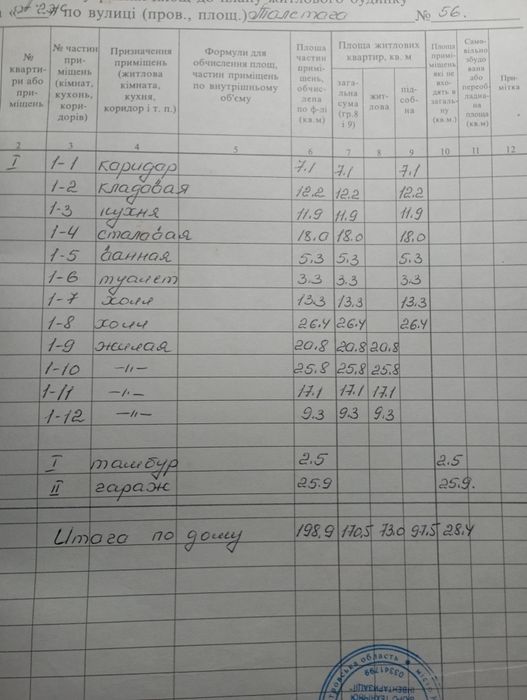 площ до плану житлового будинку
по вулиці (пров., площ.) № 56.
№ квартири або приміщень | № частин приміщень (кімнат, кухонь, коридорів) | Призначення приміщень (житлова кімната, кухня, коридор і т. п.) | Формули для обчислення площ, частин приміщень по внутрішньому об'єму | Площа частин приміщень, обчислена по ф-лі (кв.м) | Площа житлових квартир, кв. м | загальна сума (гр.8 і 9) | житлова | підсобна | Площа приміщень які не входять в загальну (кв.м.) | Самовільно збудована або переобладнана площа (кв.м) | Примітка
2 3 4 5 6 7 8 9 10 11 12
I 1-1 каридар 7.1 7.1 7.1
1-2 кладовая 12.2 12.2 12.2
1-3 кухня 11.9 11.9 11.9
1-4 сталовая 18.0 18.0 18.0
1-5 ванная 5.3 5.3 5.3
1-6 туалет 3.3 3.3 3.3
1-7 холл 13.3 13.3 13.3
1-8 холл 26.4 26.4 26.4
1-9 жилая 20.8 20.8 20.8
1-10 —"— 25.8 25.8 25.8
1-11 —"— 17.1 17.1 17.1
1-12 —"— 9.3 9.3 9.3
I тамбур 2.5 2.5
II гараж 25.9 25.9.
Итага по дому 198,9 170,5 73.0 97,5 28.4
область
03341799
ІНВЕНТАРИЗАЦІЇ